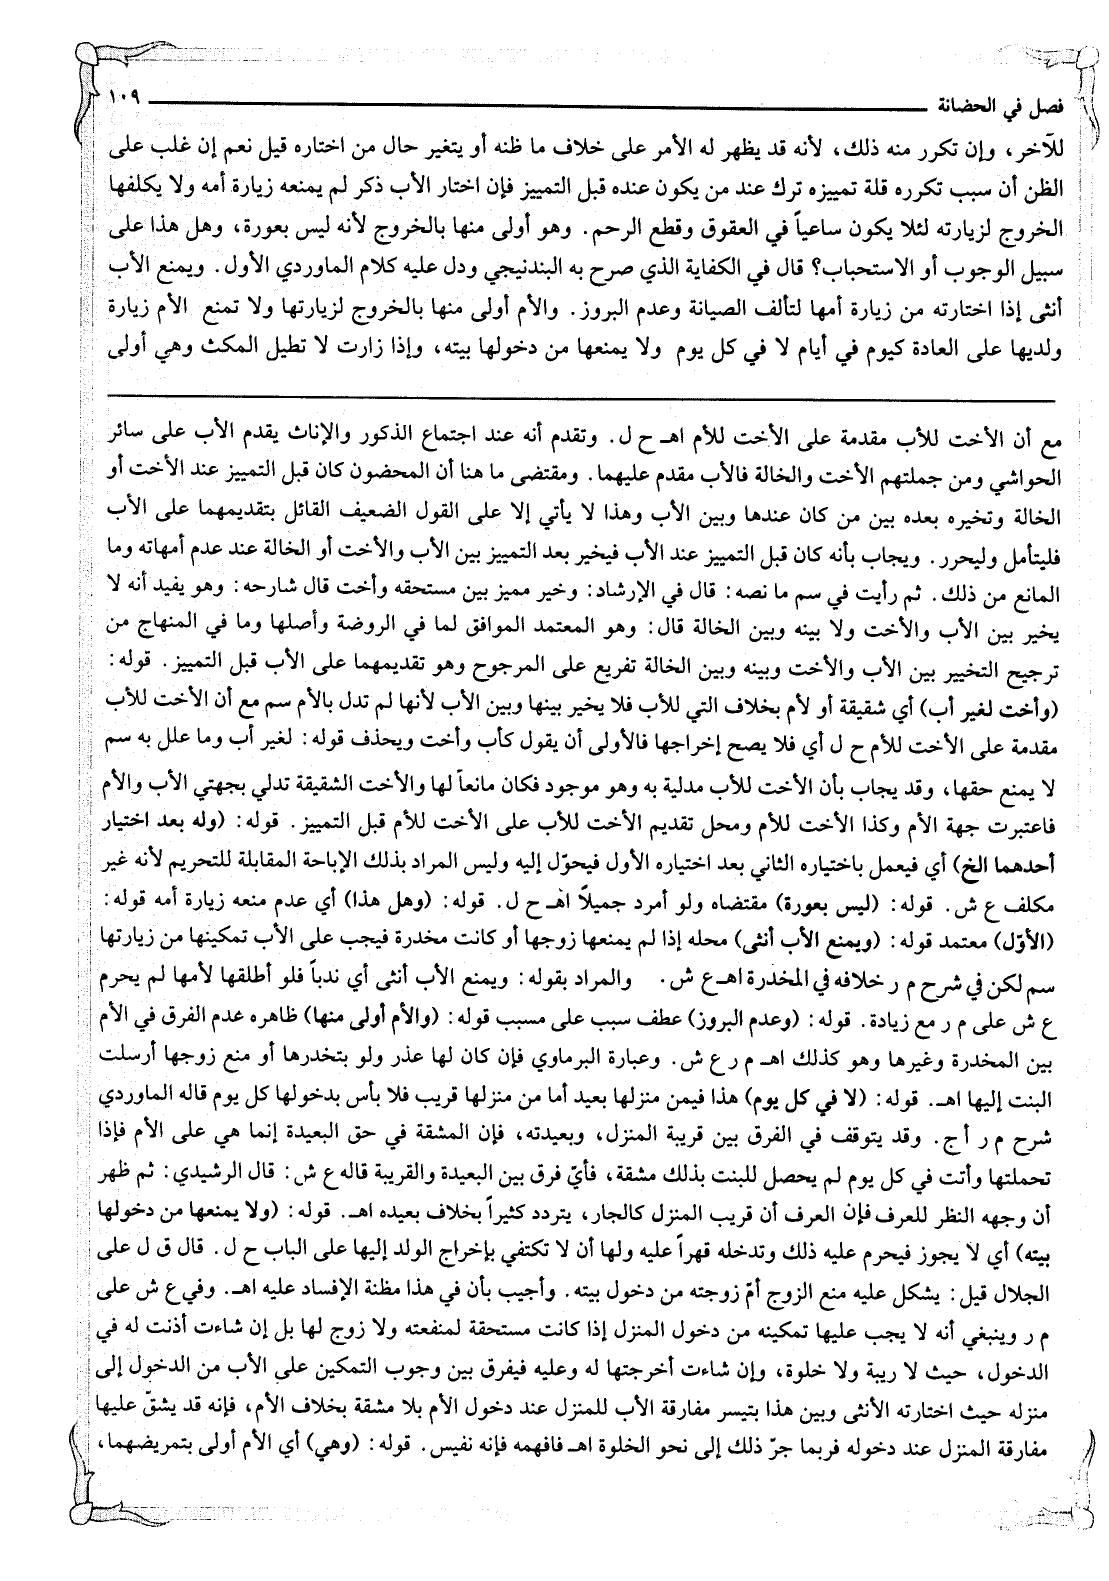 فصل في الحضانة ١٠٩
للآخر، وإن تكرر منه ذلك، لأنه قد يظهر له الأمر على خلاف ما ظنه أو يتغير حال من اختاره قيل نعم إن غلب على
الظن أن سبب تكرره قلة تمييزه ترك عند من يكون عنده قبل التمييز فإن اختار الأب ذكر لم يمنعه زيارة أمه ولا يكلفها
الخروج لزيارته لئلا يكون ساعياً في العقوق وقطع الرحم. وهو أولى منها بالخروج لأنه ليس بعورة، وهل هذا على
سبيل الوجوب أو الاستحباب؟ قال في الكفاية الذي صرح به البندنيجي ودل عليه كلام الماوردي الأول. ويمنع الأب
أنثى إذا اختارته من زيارة أمها لتألف الصيانة وعدم البروز. والأم أولى منها بالخروج لزيارتها ولا تمنع الأم زيارة
ولديها على العادة كيوم في أيام لا في كل يوم ولا يمنعها من دخولها بيته، وإذا زارت لا تطيل المكث وهي أولى
مع أن الأخت للأب مقدمة على الأخت للأم اهـ ح ل. وتقدم أنه عند اجتماع الذكور والإناث يقدم الأب على سائر
الحواشي ومن جملتهم الأخت والخالة فالأب مقدم عليهما. ومقتضى ما هنا أن المحضون كان قبل التمييز عند الأخت أو
الخالة وتخيره بعده بين من كان عندها وبين الأب وهذا لا يأتي إلا على القول الضعيف القائل بتقديمهما على الأب
فليتأمل وليحرر. ويجاب بأنه كان قبل التمييز عند الأب فيخير بعد التمييز بين الأب والأخت أو الخالة عند عدم أمهاته وما
المانع من ذلك. ثم رأيت في سم ما نصه: قال في الإرشاد: وخير مميز بين مستحقه وأخت قال شارحه: وهو يفيد أنه لا
يخير بين الأب والأخت ولا بينه وبين الخالة قال: وهو المعتمد الموافق لما في الروضة وأصلها وما في المنهاج من
ترجيح التخيير بين الأب والأخت وبينه وبين الخالة تفريع على المرجوح وهو تقديمهما على الأب قبل التمييز. قوله:
(وأخت لغير أب) أي شقيقة أو لأم بخلاف التي للأب فلا يخير بينها وبين الأب لأنها لم تدل بالأم سم مع أن الأخت للأب
مقدمة على الأخت للأم ح ل أي فلا يصح إخراجها فالأولى أن يقول كأب وأخت ويحذف قوله: لغير أب وما علل به سم
لا يمنع حقها، وقد يجاب بأن الأخت للأب مدلية به وهو موجود فكان مانعاً لها والأخت الشقيقة تدلي بجهتي الأب والأم
فاعتبرت جهة الأم وكذا الأخت للأم ومحل تقديم الأخت للأب على الأخت للأم قبل التمييز. قوله: (وله بعد اختيار
أحدهما الخ) أي فيعمل باختياره الثاني بعد اختياره الأول فيحوّل إليه وليس المراد بذلك الإباحة المقابلة للتحريم لأنه غير
مكلف ع ش. قوله: (ليس بعورة) مقتضاه ولو أمرد جميلاً اهـ ح ل. قوله: (وهل هذا) أي عدم منعه زيارة أمه قوله:
(الأوّل) معتمد قوله: (ويمنع الأب أنثى) محله إذا لم يمنعها زوجها أو كانت مخدرة فيجب على الأب تمكينها من زيارتها
سم لكن في شرح م ر خلافه في المخدرة اهـ ع ش. والمراد بقوله: ويمنع الأب أنثى أي ندباً فلو أطلقها لأمها لم يحرم
ع ش على م ر مع زيادة. قوله: (وعدم البروز) عطف سبب على مسبب قوله: (والأم أولى منها) ظاهره عدم الفرق في الأم
بين المخدرة وغيرها وهو كذلك اهـ م ر ع ش. وعبارة البرماوي فإن كان لها عذر ولو بتخدرها أو منع زوجها أرسلت
البنت إليها اهـ. قوله: (لا في كل يوم) هذا فيمن منزلها بعيد أما من منزلها قريب فلا بأس بدخولها كل يوم قاله الماوردي
شرح م ر أ ج. وقد يتوقف في الفرق بين قريبة المنزل، وبعيدته، فإن المشقة في حق البعيدة إنما هي على الأم فإذا
تحملتها وأتت في كل يوم لم يحصل للبنت بذلك مشقة، فأيّ فرق بين البعيدة والقريبة قاله ع ش: قال الرشيدي: ثم ظهر
أن وجهه النظر للعرف فإن العرف أن قريب المنزل كالجار، يتردد كثيراً بخلاف بعيده اهـ. قوله: (ولا يمنعها من دخولها
بيته) أي لا يجوز فيحرم عليه ذلك وتدخله قهراً عليه ولها أن لا تكتفي بإخراج الولد إليها على الباب ح ل. قال ق ل على
الجلال قيل: يشكل عليه منع الزوج أمّ زوجته من دخول بيته. وأجيب بأن في هذا مظنة الإفساد عليه اهـ. وفي ع ش على
م ر وينبغي أنه لا يجب عليها تمكينه من دخول المنزل إذا كانت مستحقة لمنفعته ولا زوج لها بل إن شاءت أذنت له في
الدخول، حيث لا ريبة ولا خلوة، وإن شاءت أخرجتها له وعليه فيفرق بين وجوب التمكين على الأب من الدخول إلى
منزله حيث اختارته الأنثى وبين هذا بتيسر مفارقة الأب للمنزل عند دخول الأم بلا مشقة بخلاف الأم، فإنه قد يشقّ عليها
مفارقة المنزل عند دخوله فربما جرّ ذلك إلى نحو الخلوة اهـ فافهمه فإنه نفيس. قوله: (وهي) أي الأم أولى بتمريضهما،